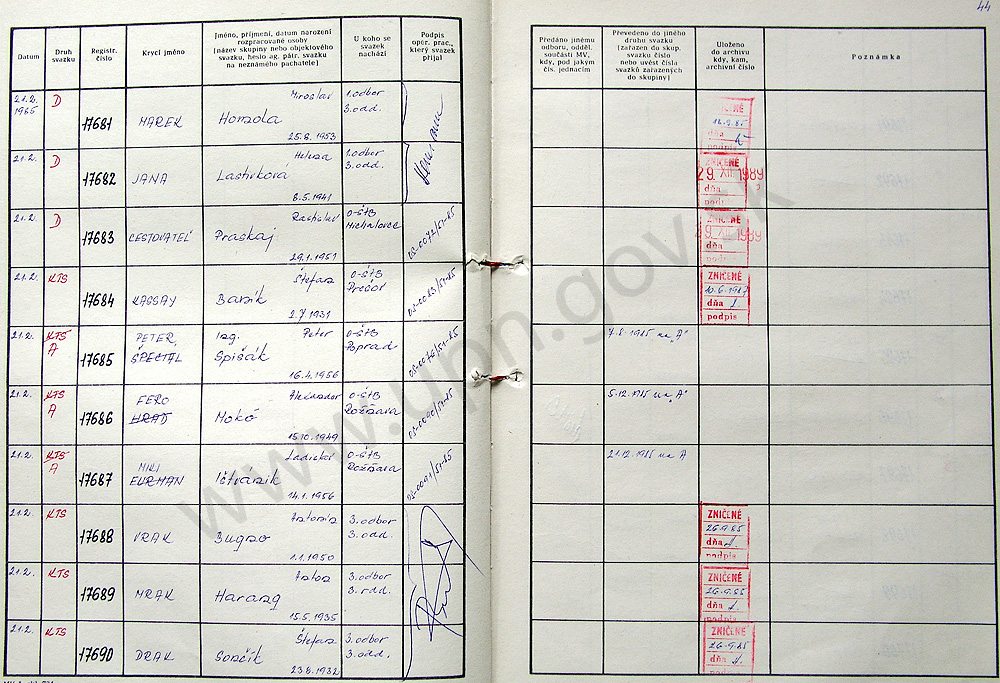 44
Datum
Druh svazku
Registr. číslo
Krycí jméno
Jméno, příjmení, datum narození
rozpracované osoby
(název skupiny nebo objektového
svazku, heslo ag. pátr. svazku
na neznámého pachatele)
U koho se
svazek
nachází
Podpis
oper. prac.,
který svazek
přijal
Předáno jinému
odboru, odděl.
součásti MV,
kdy, pod jakým
čís. jednacím
Převedeno do jiného
druhu svazku
(zařazen do skup.
svazku číslo
nebo uvést čísla
svazků zařazených
do skupiny)
Uloženo
do archivu
kdy, kam,
archivní číslo
Poznámka
21.2. 1985 D 17681 MAREK Miroslav Homola 25.8.1953 1.odbor 3.odd.
18.9.85 dňa podpis
21.2. D 17682 JANA Helena 8.5.1941 1.odbor 3.odd.
ZNIČENÉ 29. XII. 1989 dňa
21.2. D 17683 CESTOVATEĽ Rastislav Praskaj 29.1.1951 O-ŠtB Michalovce
ZNIČENÉ XII 1989 dňa
21.2. KTS 17684 KASSAY Štefan Baník 2.7.1931 O-ŠtB Prešov
ZNIČENÉ 10.6.1987 dňa podpis
21.2. KTS A 17685 PETER, ŠPECTAL Ing. Peter Spišák 16.4.1956 O-ŠtB Poprad
7.8.1985 na „A"
21.2. KTS A 17686 FERO HRAD Alexander Mokó 15.10.1949 O-ŠtB Rožňava
5.12.1985 na „A"
21.2. KTS A 17687 MIKI FURMAN Ladislav Ištvánik 14.1.1956 O-ŠtB Rožňava
21.12.1985 na A
21.2. KTS 17688 VRAK 1.1.1950 3.odbor 3.odd.
ZNIČENÉ 26.9.85 dňa podpis
21.2. KTS 17689 MRAK Anton Harang 15.5.1935 3.odbor 3.odd.
ZNIČENÉ 26.9.85 dňa podpis
21.2. KTS 17690 DRAK Štefan Sončík 23.8.1932 3.odbor 3.odd.
ZNIČENÉ 26.9.85 dňa podpis
www.upn.gov.sk